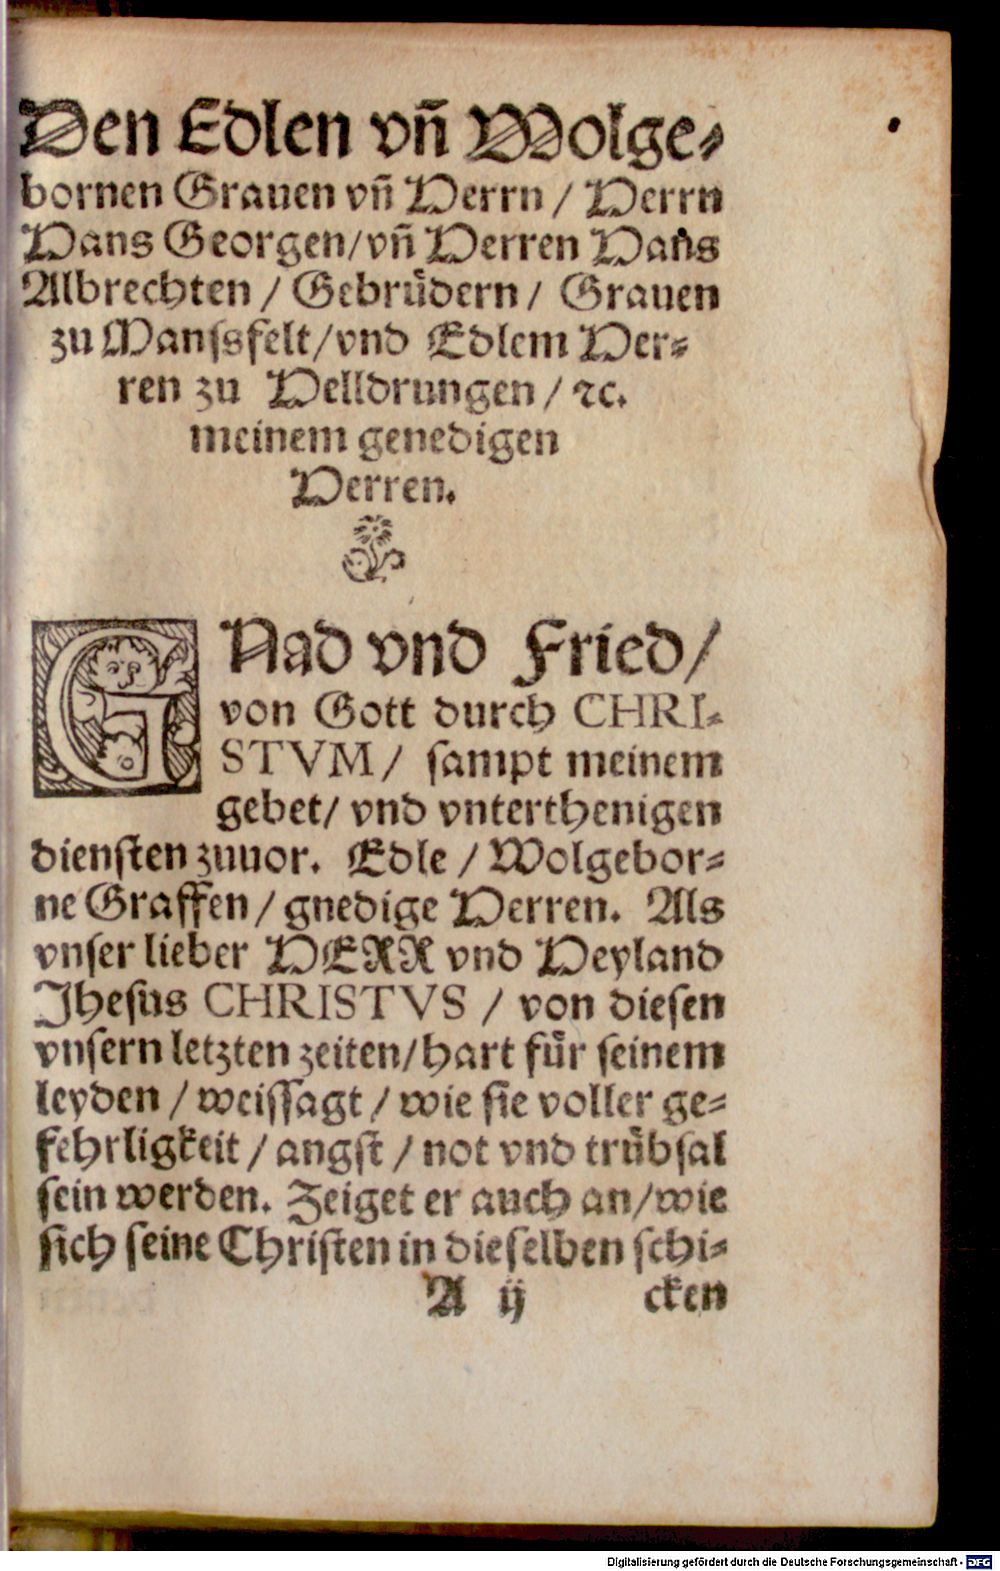 Den Edlen vñ Wolge⸗
bornen Grauen vñ Herrn / Herrn
Hans Georgen/vñ Herren Hans
Albrechten / Gebrüdern / Grauen
zu Mansfelt/vnd Edlem Her⸗
ren zu Helldrungen / ꝛc.
meinem genedigen
Herren.
GNad vnd Fried/
von Gott durch CHRI⸗
STVM/ sampt meinem
gebet/ vnd vnterthenigen
diensten zuuor. Edle / Wolgebor⸗
ne Graffen / gnedige Herren. Als
vnser lieber HERR vnd Heyland
Jhesus CHRISTVS / von diesen
vnsern letzten zeiten/hart für seinem
leyden / weissagt / wie sie voller ge⸗
fehrligkeit / angst / not vnd trübsal
sein werden. Zeiget er auch an/wie
sich seine Christen in dieselben schi⸗
A ij cken
Digitalisierung gefördert durch die Deutsche Forschungsgemeinschaft - DFG